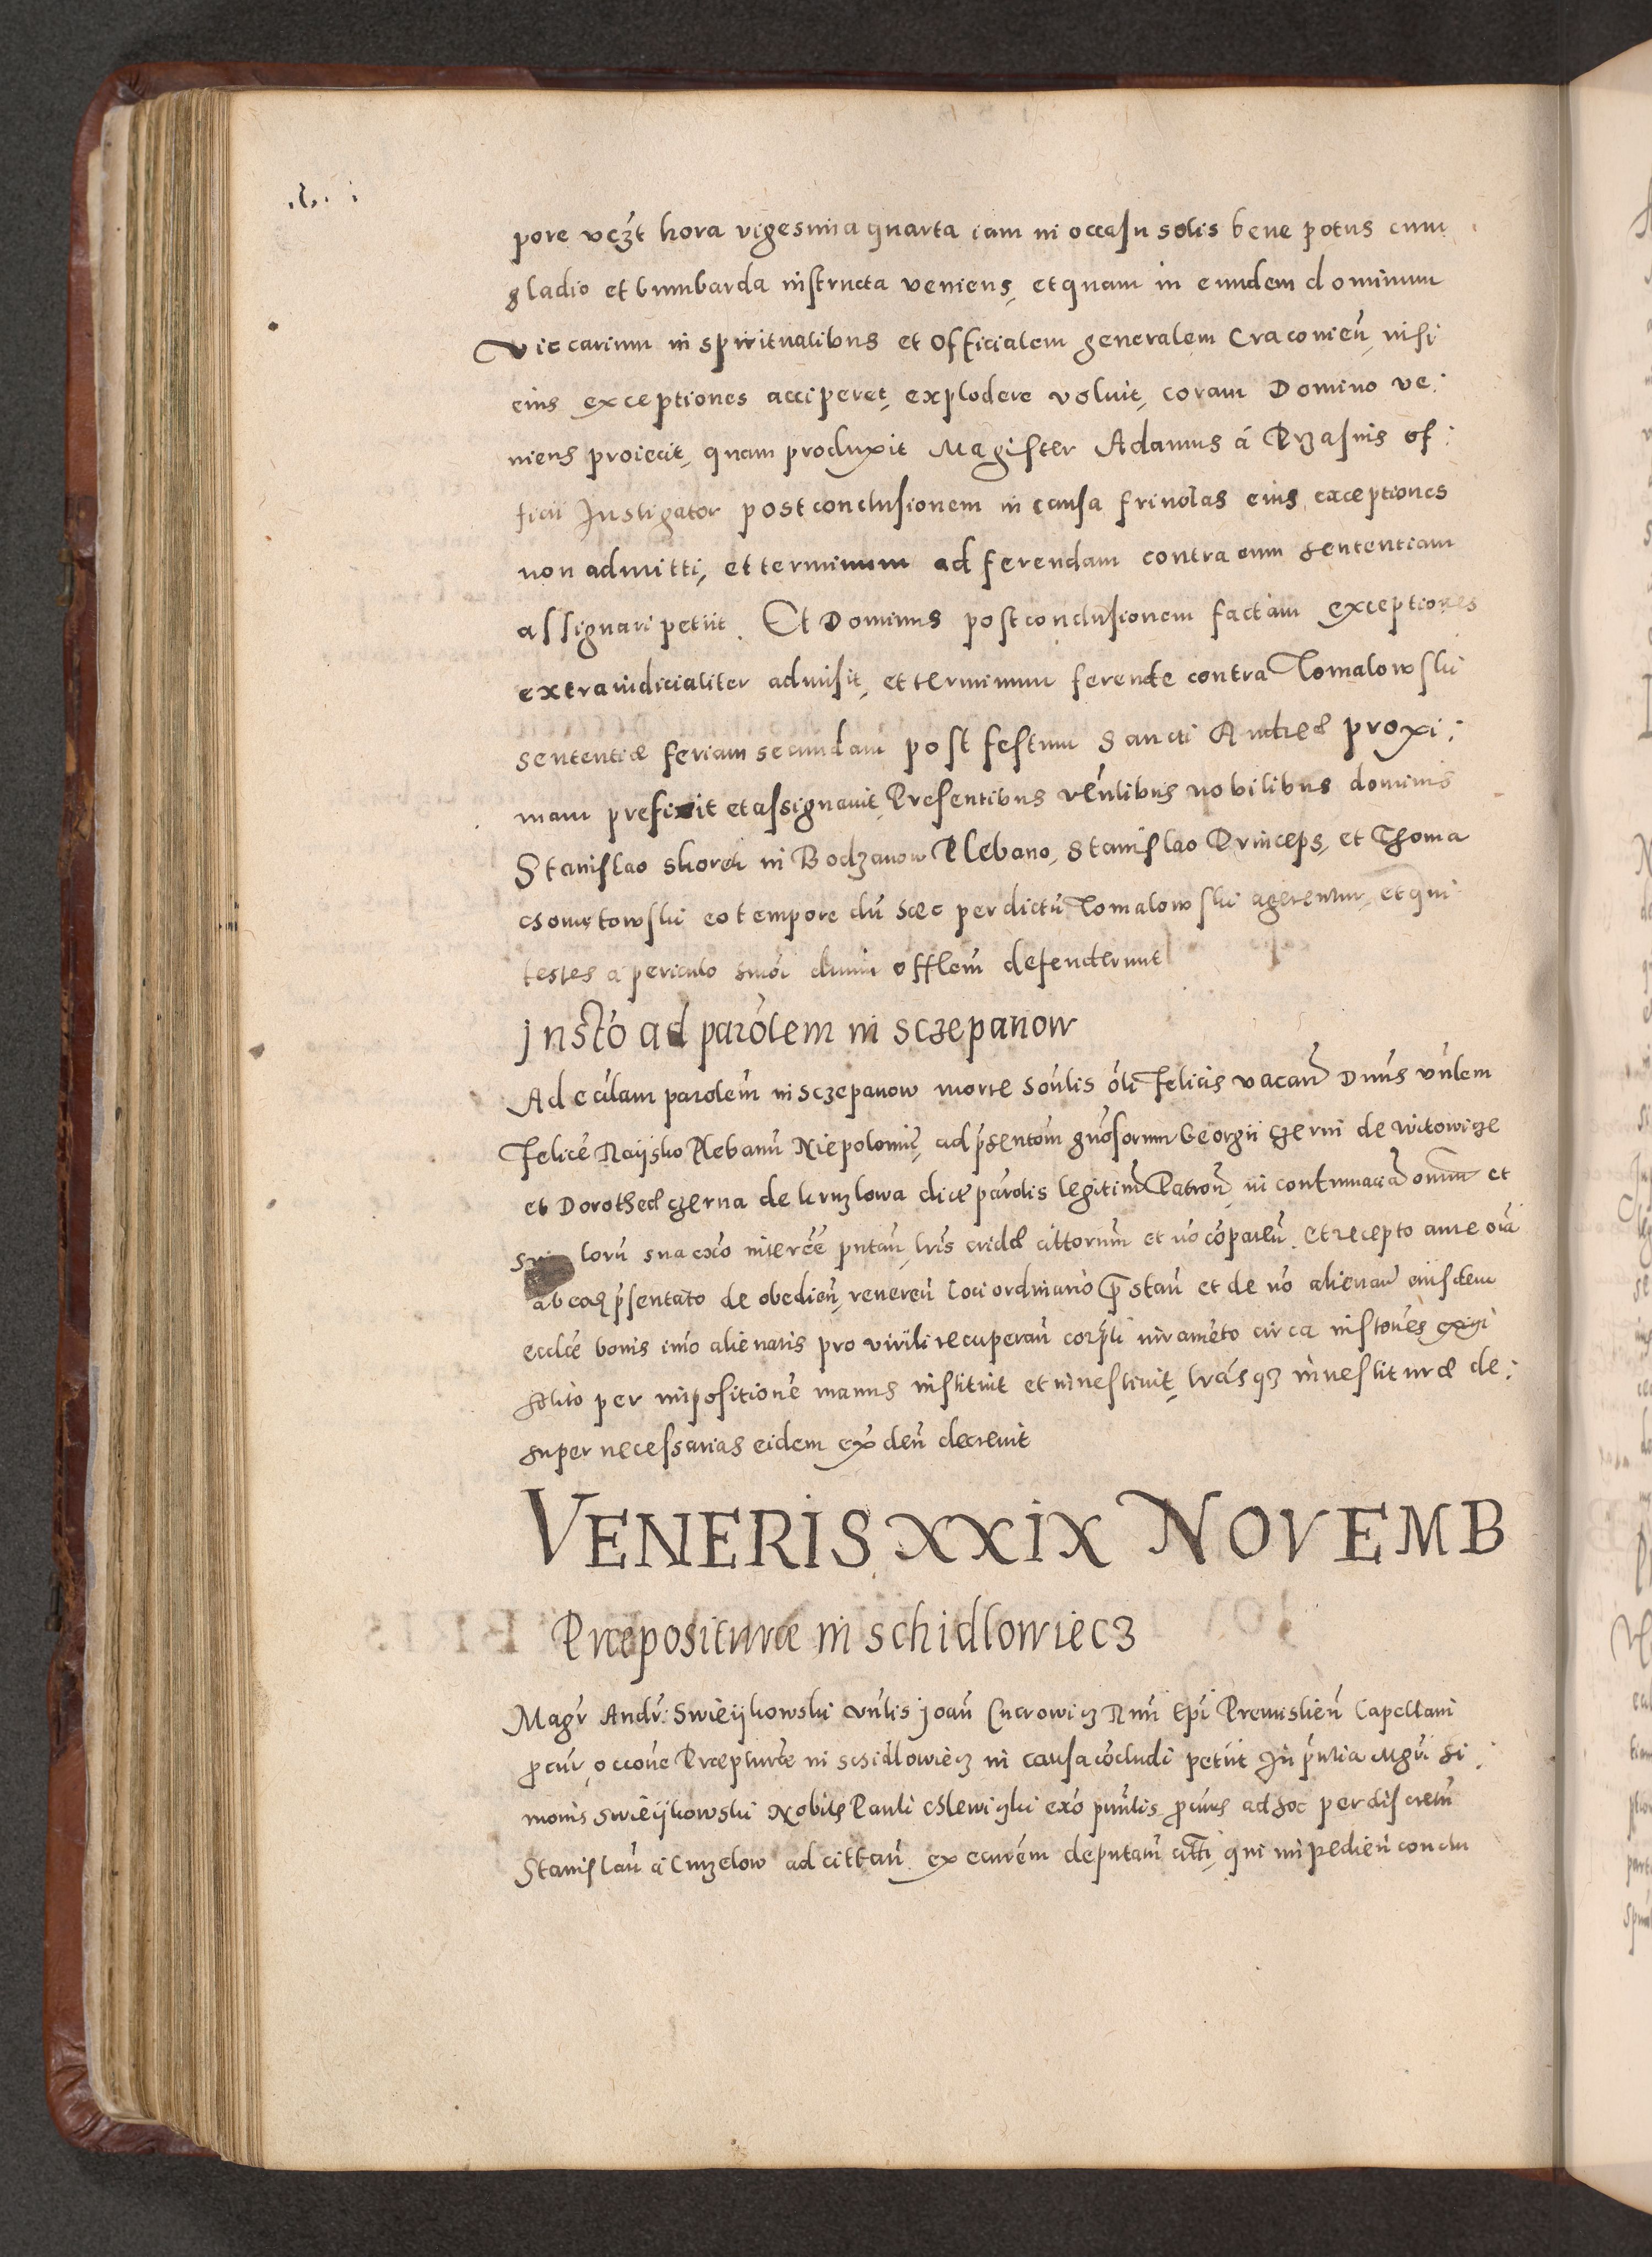 pore vezt hora vigesima quarta iam in occasu solis bene potus cum
gladio et bumbarda instructa veniens, et quam in eundem dominum
Viccarium in spiritualibus et Officialem generalem Cracovien̄, nisi
eius exceptiones acciperet, explodere voluit, coram Domino ve:
niens proiecit, quam produxit Magister Adamus á Przasnis of:
ficii Instigator post conclusionem in causa friuolas eius exceptiones
non admitti, et terminum ad ferendam contra eum sententiam
assignari petiit. Et Dominus post conclusionem factam exceptiones
extraiudicialiter admisit, et terminum ferende contra Tomalowski
sententiæ feriam secundam post festum Sancti Andreæ proxi:
mam prefixit et assignauit, Presentibus ven̄libus nobilibus dominis
Stanislao skorek in Bodzanow Plebano, Stanislao Princeps, et Thoma
eo tempore dū hæc per dictū Tomalowski agerentur, et qui
testes a periculo dnm̄ offlem̄ defenderunt
Insto ad parōlem in Sczepanow
Ad eccl̄am parolem̄ in Sczepanow morte ōli Felicis vacan̄ Dnūs vn̄lem
Felicē Raijsko Plebanū Niepolomic, ad p̄sentom̄ gn̄osorum Georgii Czerni de witowicze
et Dorotheæ Czerna de kruzlowa dicte parōlis legitim̄ Patron̄, in contumacia om̄m et
lorū sua exō interēe putan̄, lrīs cridæ cittorum̄ et nō cōparen̄. Et recepto ante oīa
ab eoq p̄sentato de obedien̄, reueren̄ loci ordinario p̄stan̄ et de nō alienan̄ eiusdem
ecclæ bonis imō alienatis pro virili recuperan̄ corp̄li iuramēto circa instones exigi
solito per impositionē manus instituit et inuestiuit, lrāsqz inuestituræ de:
super necessarias eidem exden̄ decreuit
VENERIS XXIX NOVEMB
Præpositurae in schidlowiecz
Magr̄ Andr̄: Swieijkowski vn̄lis Joan̄ Cucrowicz Rmī Epī Premislien̄ Capellani
p̄cur̄, occōne Præpturæ in schidlowiecz in causa cōcludi petiit In p̄ntia Mgrī Si:
monis Swieijkowski Nobilis Pauli Chlewiczki exō pnūlis p̄curis ad hoc per discretū
Stanislaū á Curzelow ad cittan̄ ex eāurēm deputatū citti, qui impedien̄ conclu